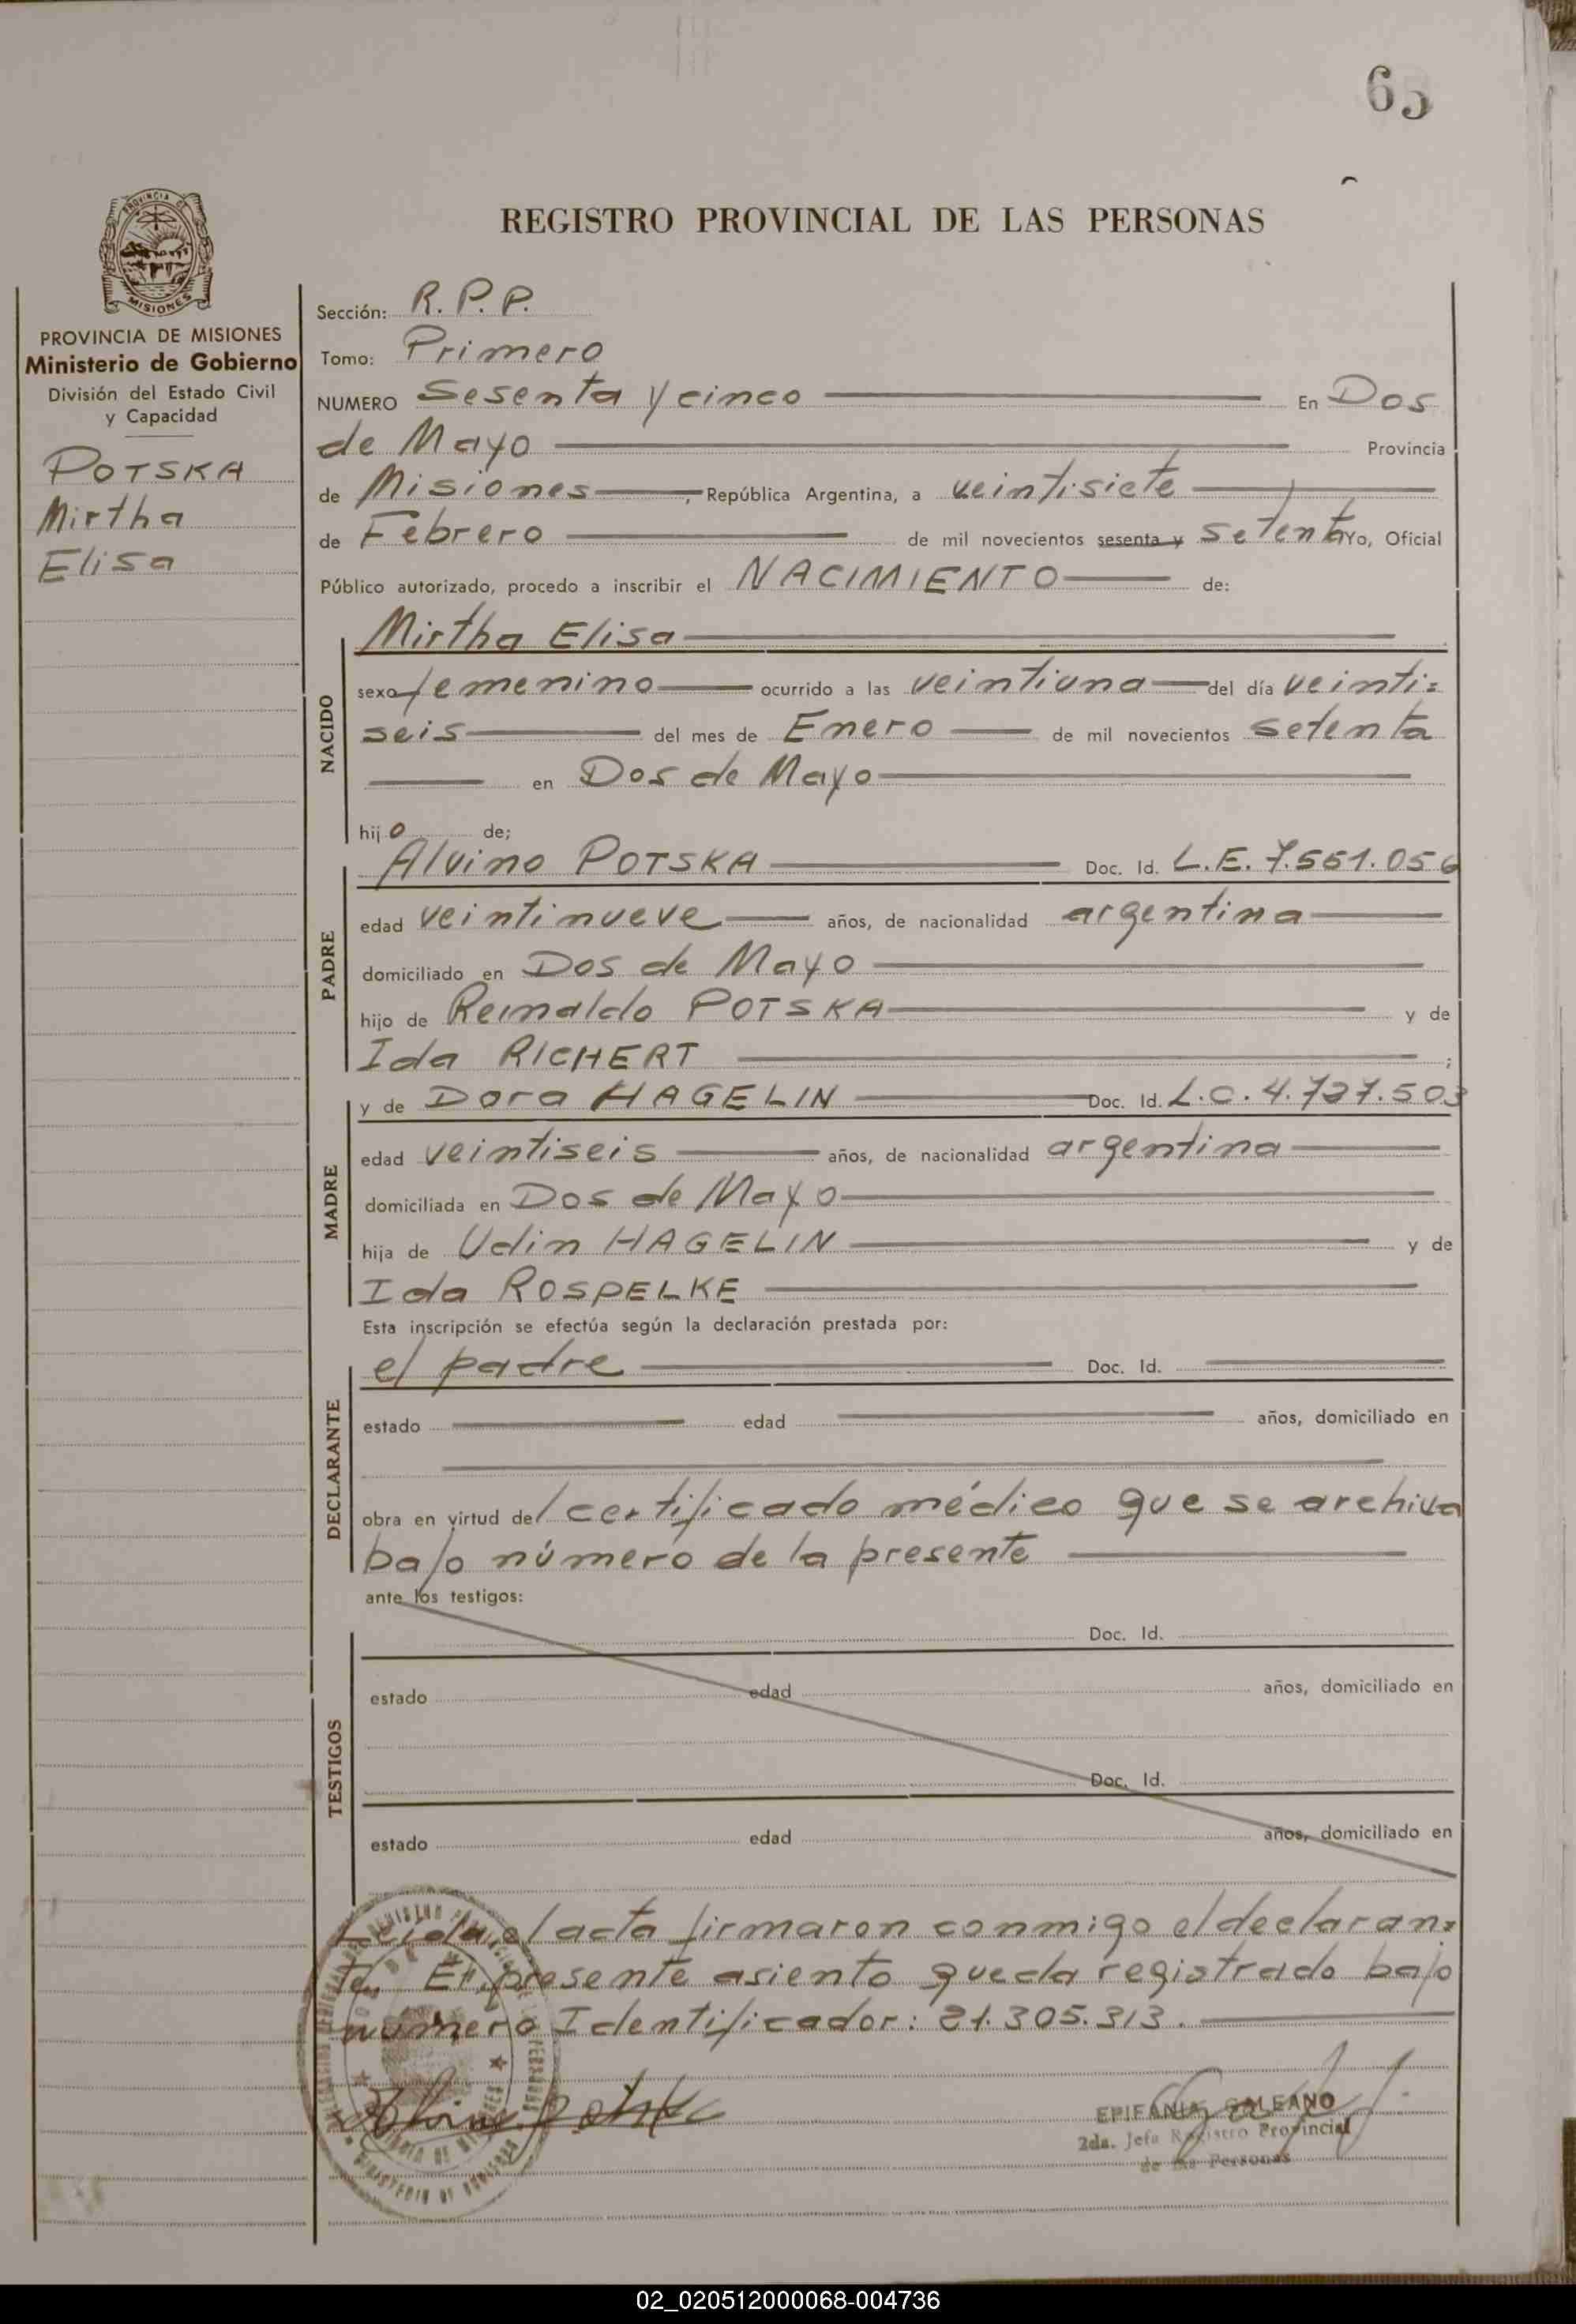 65
PROVINCIA DE
MISIONES
PROVINCIA DE MISIONES
Ministerio de Gobierno
División del Estado Civil
y Capacidad
POTSKA
Mirtha
Elisa
REGISTRO PROVINCIAL DE LAS PERSONAS
Sección: R.P.P.
Tomo: Primero
NUMERO Sesenta y cinco En Dos
de Mayo Provincia
de Misiones, República Argentina, a veintisiete
de Febrero de mil novecientos sesenta y setenta Yo, Oficial
Público autorizado, procedo a inscribir el NACIMIENTO de:
NACIDO
Mirtha Elisa
sexo femenino ocurrido a las veintiuna del día veinti=
seis del mes de Enero de mil novecientos setenta
en Dos de Mayo
hijo de;
PADRE
Alvino POTSKA Doc. Id. L.E. 7.551.056
edad veintinueve años, de nacionalidad argentina
domiciliado en Dos de Mayo
hijo de Reinaldo POTSKA y de
Ida RICHERT ;
MADRE
y de Dora HAGELIN Doc. Id. L.C. 4.727.503
edad veintiseis años, de nacionalidad argentina
domiciliada en Dos de Mayo
hija de Udin HAGELIN y de
Ida ROSPELKE
Esta inscripción se efectúa según la declaración prestada por:
DECLARANTE
el padre Doc. Id.
estado edad años, domiciliado en
obra en virtud del certificado médico que se archiva
bajo número de la presente
ante los testigos:
TESTIGOS
Doc. Id.
estado edad años, domiciliado en
Doc. Id.
estado edad años, domiciliado en
Leida el acta firmaron conmigo el declaran=
te. El presente asiento queda registrado bajo
número Identificador: 21.305.313.
EPIFANIA GALEANO
2da. Jefa Registro Provincial
de las Personas
02_020512000068-004736